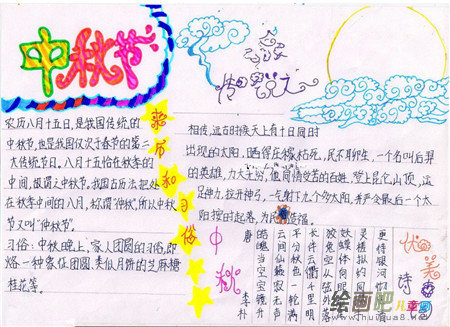 中秋节
传说
来历和习俗
农历八月十五日,是我国传统的
中秋节,也是我国仅次于春节的第二
大传统节日。八月十五恰在秋季的
中间,故谓之中秋节。我国古历法把处
在秋季中间的八月,称谓“仲秋”,所以中秋
节又叫“仲秋节”。
习俗:中秋晚上,家人团圆的习俗,即
烙一种象征团圆、类似月饼的
桂花等。
相传,远古时候天上有十日同时
出现的太阳,晒得庄稼枯死,民不聊生,一个名叫后羿
的英雄,力大无穷,同情受苦的百姓,登上昆仑山顶,运
足神力,拉开神弓,一气射下九个多太阳,并严令最后一个太
阳按时起落,为民造福。
优美
诗
中秋
唐 李朴
皓魄当空宝镜升
云间仙籁寂无声
平分秋色一轮满
长伴云衢千里明
狡兔空从弦外落
妖蟆休向眼前生
灵槎拟约同携手
更待银河彻底清
绘画吧
儿童画
www.huihua8.net